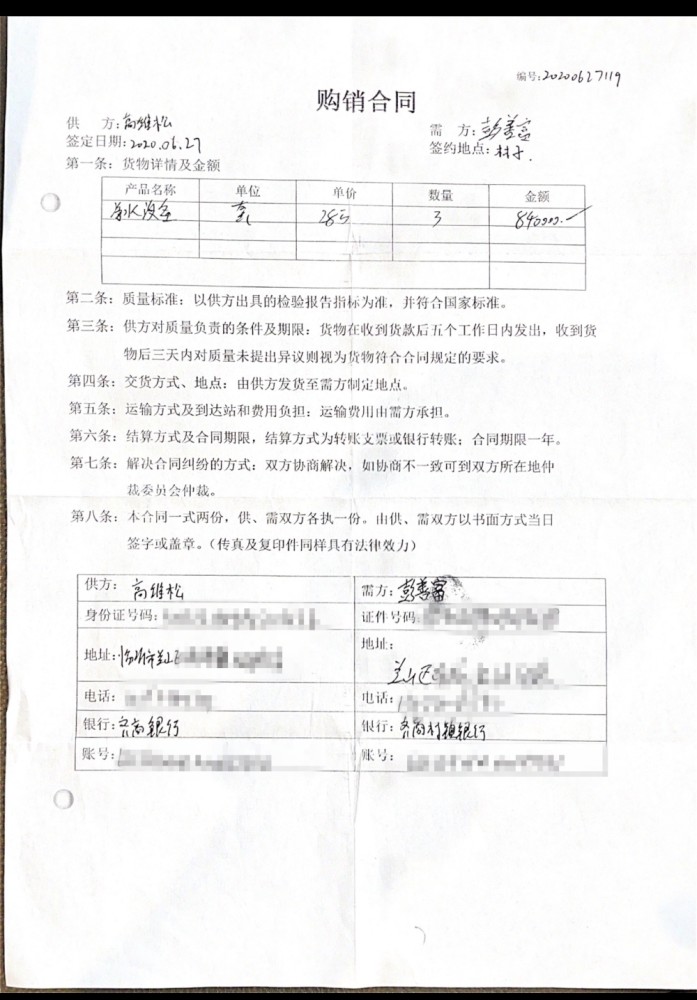 编号:20200627119
购销合同
供 方:高维松
需 方:彭善富
签定日期:2020.06.27
签约地点:
第一条:货物详情及金额
产品名称 单位 单价 数量 金额
28万 3 840000.-
第二条:质量标准:以供方出具的检验报告指标为准,并符合国家标准。
第三条:供方对质量负责的条件及期限:货物在收到货款后五个工作日内发出,收到货
物后三天内对质量未提出异议则视为货物符合合同规定的要求。
第四条:交货方式、地点:由供方发货至需方制定地点。
第五条:运输方式及到达站和费用负担:运输费用由需方承担。
第六条:结算方式及合同期限,结算方式为转账支票或银行转账;合同期限一年。
第七条:解决合同纠纷的方式:双方协商解决,如协商不一致可到双方所在地仲
裁委员会仲裁。
第八条:本合同一式两份,供、需双方各执一份。由供、需双方以书面方式当日
签字或盖章。(传真及复印件同样具有法律效力)
供方:高维松
需方:彭善富
身份证号码:
证件号码
地址:临沂市兰山区
地址:
兰山区
电话:
电话:
银行:齐商银行
银行:齐商村镇银行
账号:
账号: